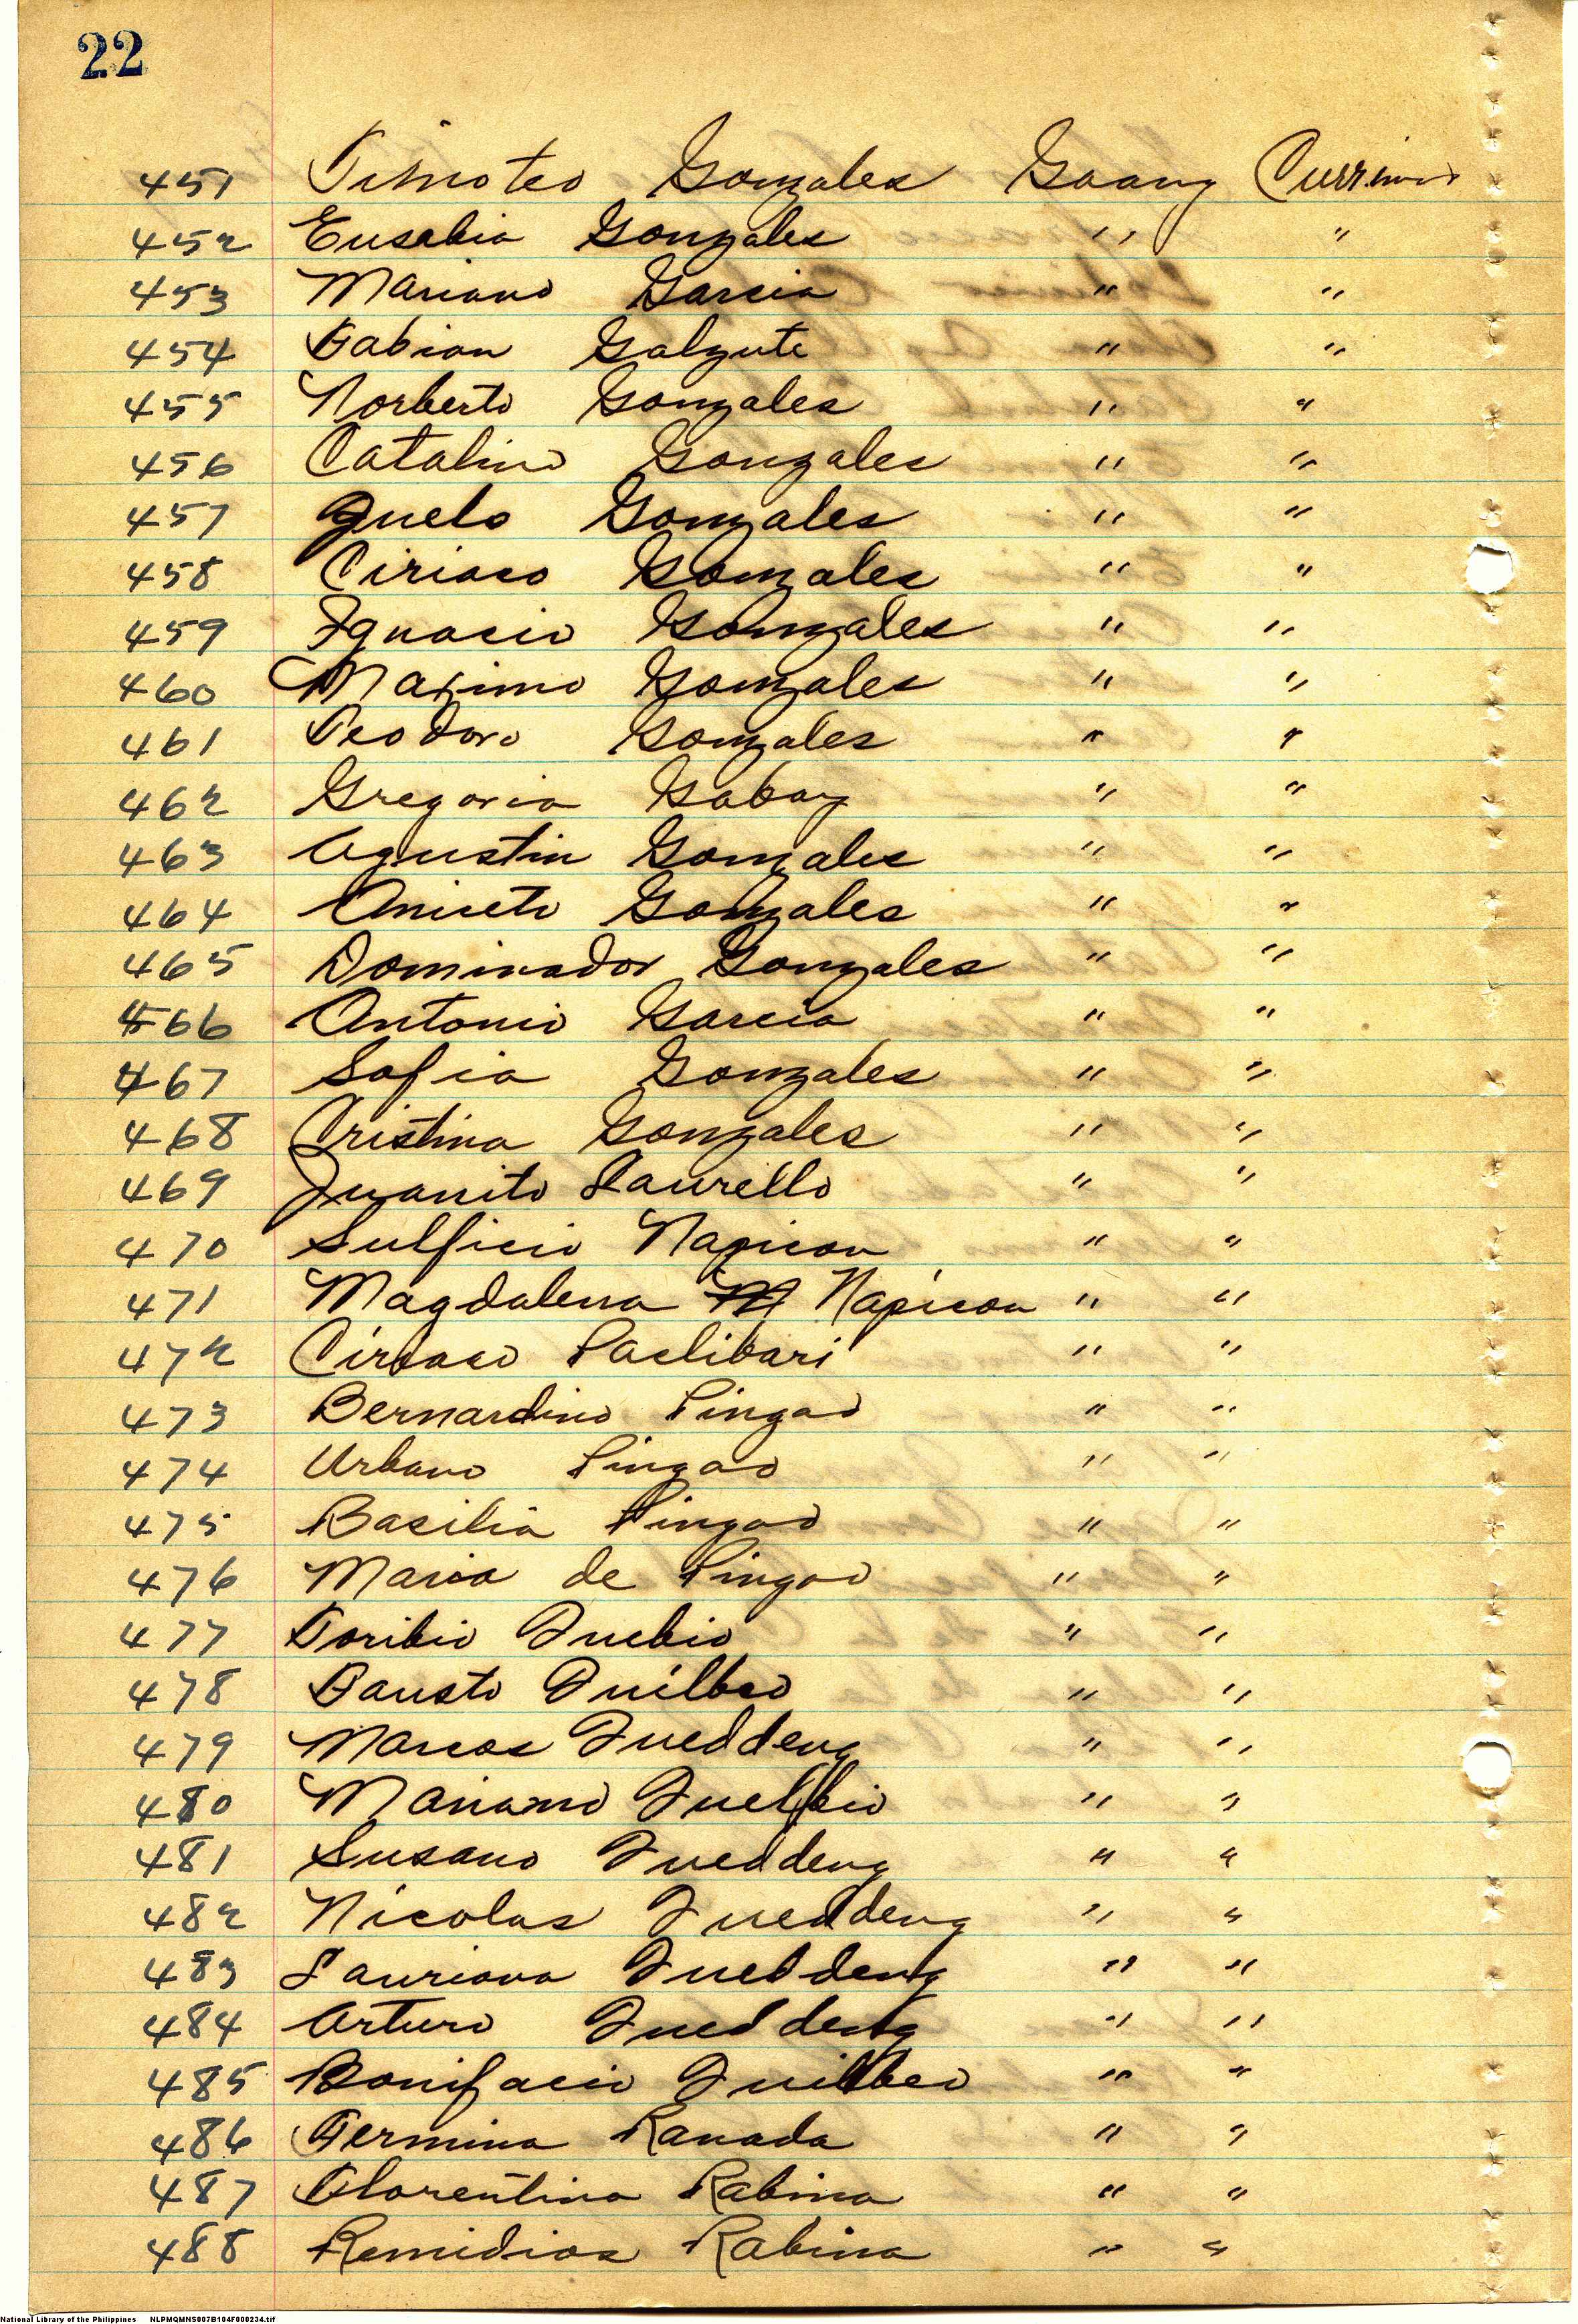 22
451 Timoteo Gonzales Gaang Currimao
452 Eusebia Gonzales " "
453 Mariano Garcia " "
454 Fabian Galzote " "
455 Norberto Gonzales " "
456 Catalino Gonzales " "
457 Gonzales " "
458 Ciriaco Gonzales " "
459 Ignacio Gonzales " "
460 Maximo Gonzales " "
461 Teodoro Gonzales " "
462 Gregoria Gabay " "
463 Agustin Gonzales " "
464 Aniceto Gonzales " "
465 Dominador Gonzales " "
466 Antonio Garcia " "
467 Sofia Gonzales " "
468 Cristina Gonzales " "
469 Juanito Laurello " "
470 Sulficio Napicon " "
471 Magdalena Napicon " "
472 Ciriaco Paclibari " "
473 Bernardino Pingao " "
474 Urbano Pingao " "
475 Basilia Pingao " "
476 Maria de Pingao " "
477 Toribio Quebio " "
478 Fausto Quilbeo " "
479 Marcos Queddeng " "
480 Mariano " "
481 Susano Queddeng " "
482 Nicolas Queddeng " "
483 Lauriana Queddeng " "
484 Arturo Queddeng " "
485 Bonifacio Quilbeo " "
486 Fermina Ranada " "
487 Florentina Rabina " "
488 Remidios Rabina " "
National Library of the Philippines NLPMQMNS007B104F000234.tif